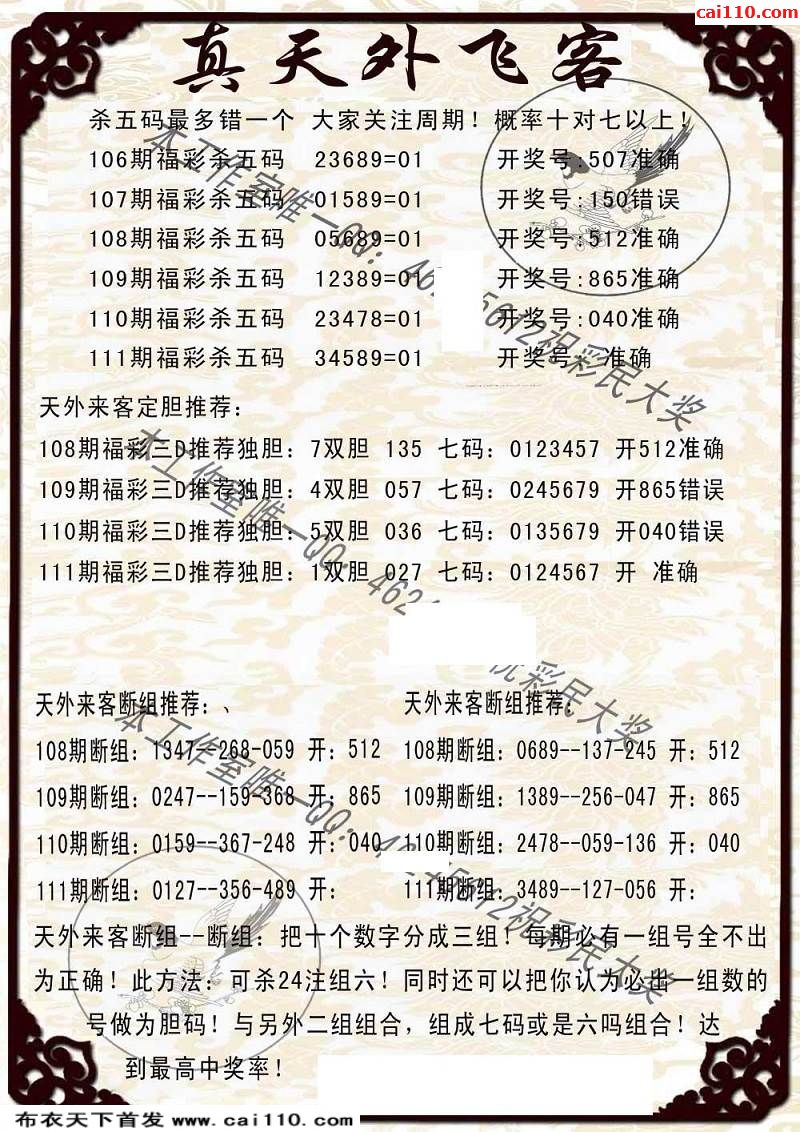 cai110.com
真天外飞客
杀五码最多错一个 大家关注周期！概率十对七以上！
106期福彩杀五码 23689=01 开奖号:507准确
107期福彩杀五码 01589=01 开奖号:150错误
108期福彩杀五码 05689=01 开奖号:512准确
109期福彩杀五码 12389=01 开奖号:865准确
110期福彩杀五码 23478=01 开奖号:040准确
111期福彩杀五码 34589=01 开奖号: 准确
天外来客定胆推荐:
108期福彩三D推荐独胆: 7双胆 135 七码: 0123457 开512准确
109期福彩三D推荐独胆: 4双胆 057 七码: 0245679 开865错误
110期福彩三D推荐独胆: 5双胆 036 七码: 0135679 开040错误
111期福彩三D推荐独胆: 1双胆 027 七码: 0124567 开 准确
天外来客断组推荐:、 天外来客断组推荐:
108期断组: 1347--268-059 开: 512 108期断组: 0689--137-245 开: 512
109期断组: 0247--159-368 开: 865 109期断组: 1389--256-047 开: 865
110期断组: 0159--367-248 开: 040 110期断组: 2478--059-136 开: 040
111期断组: 0127--356-489 开: 111期断组: 3489--127-056 开:
天外来客断组--断组: 把十个数字分成三组！每期必有一组号全不出
为正确！此方法: 可杀24注组六！同时还可以把你认为必出一组数的
号做为胆码！与另外二组组合, 组成七码或是六吗组合！达
到最高中奖率！
本工作室唯一QQ: 祝彩民大奖
本工作室唯一QQ: 祝彩民大奖
本工作室唯一QQ: 祝彩民大奖
布衣天下首发 www.cai110.com